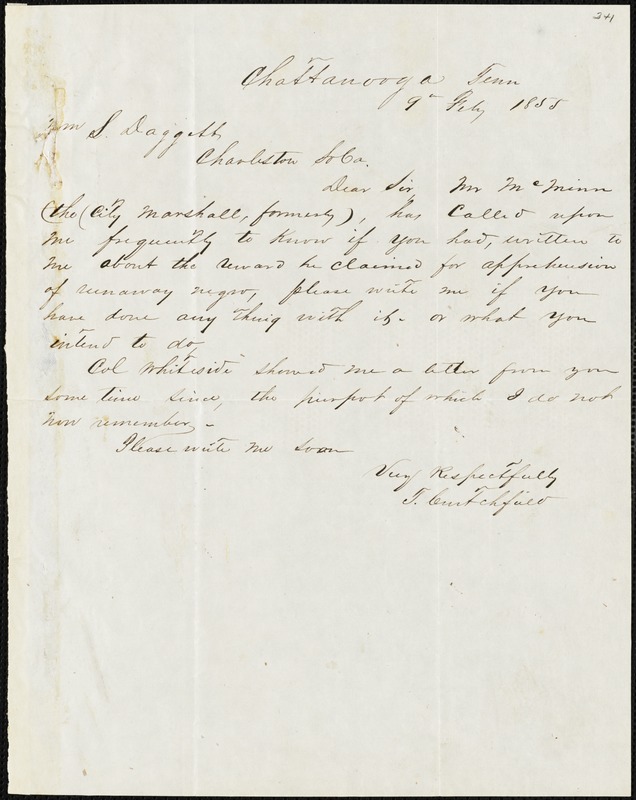 241
Chattanooga Tenn
9th Feby 1855
Wm S. Daggett
Charleston So Ca.
Dear Sir Mr McMinn
(the (City Marshall, formerly), has called upon
me frequently to know if you had, written to
me about the reward he claimed for apprehension
of runaway negro, please write me if you
have done any thing with it - or what you
intend to do
Col Whiteside showed me a letter from you
some time since, the purpot of which I do not
now remember -
Please write me soon
Very Respectfully
T. Crutchfield